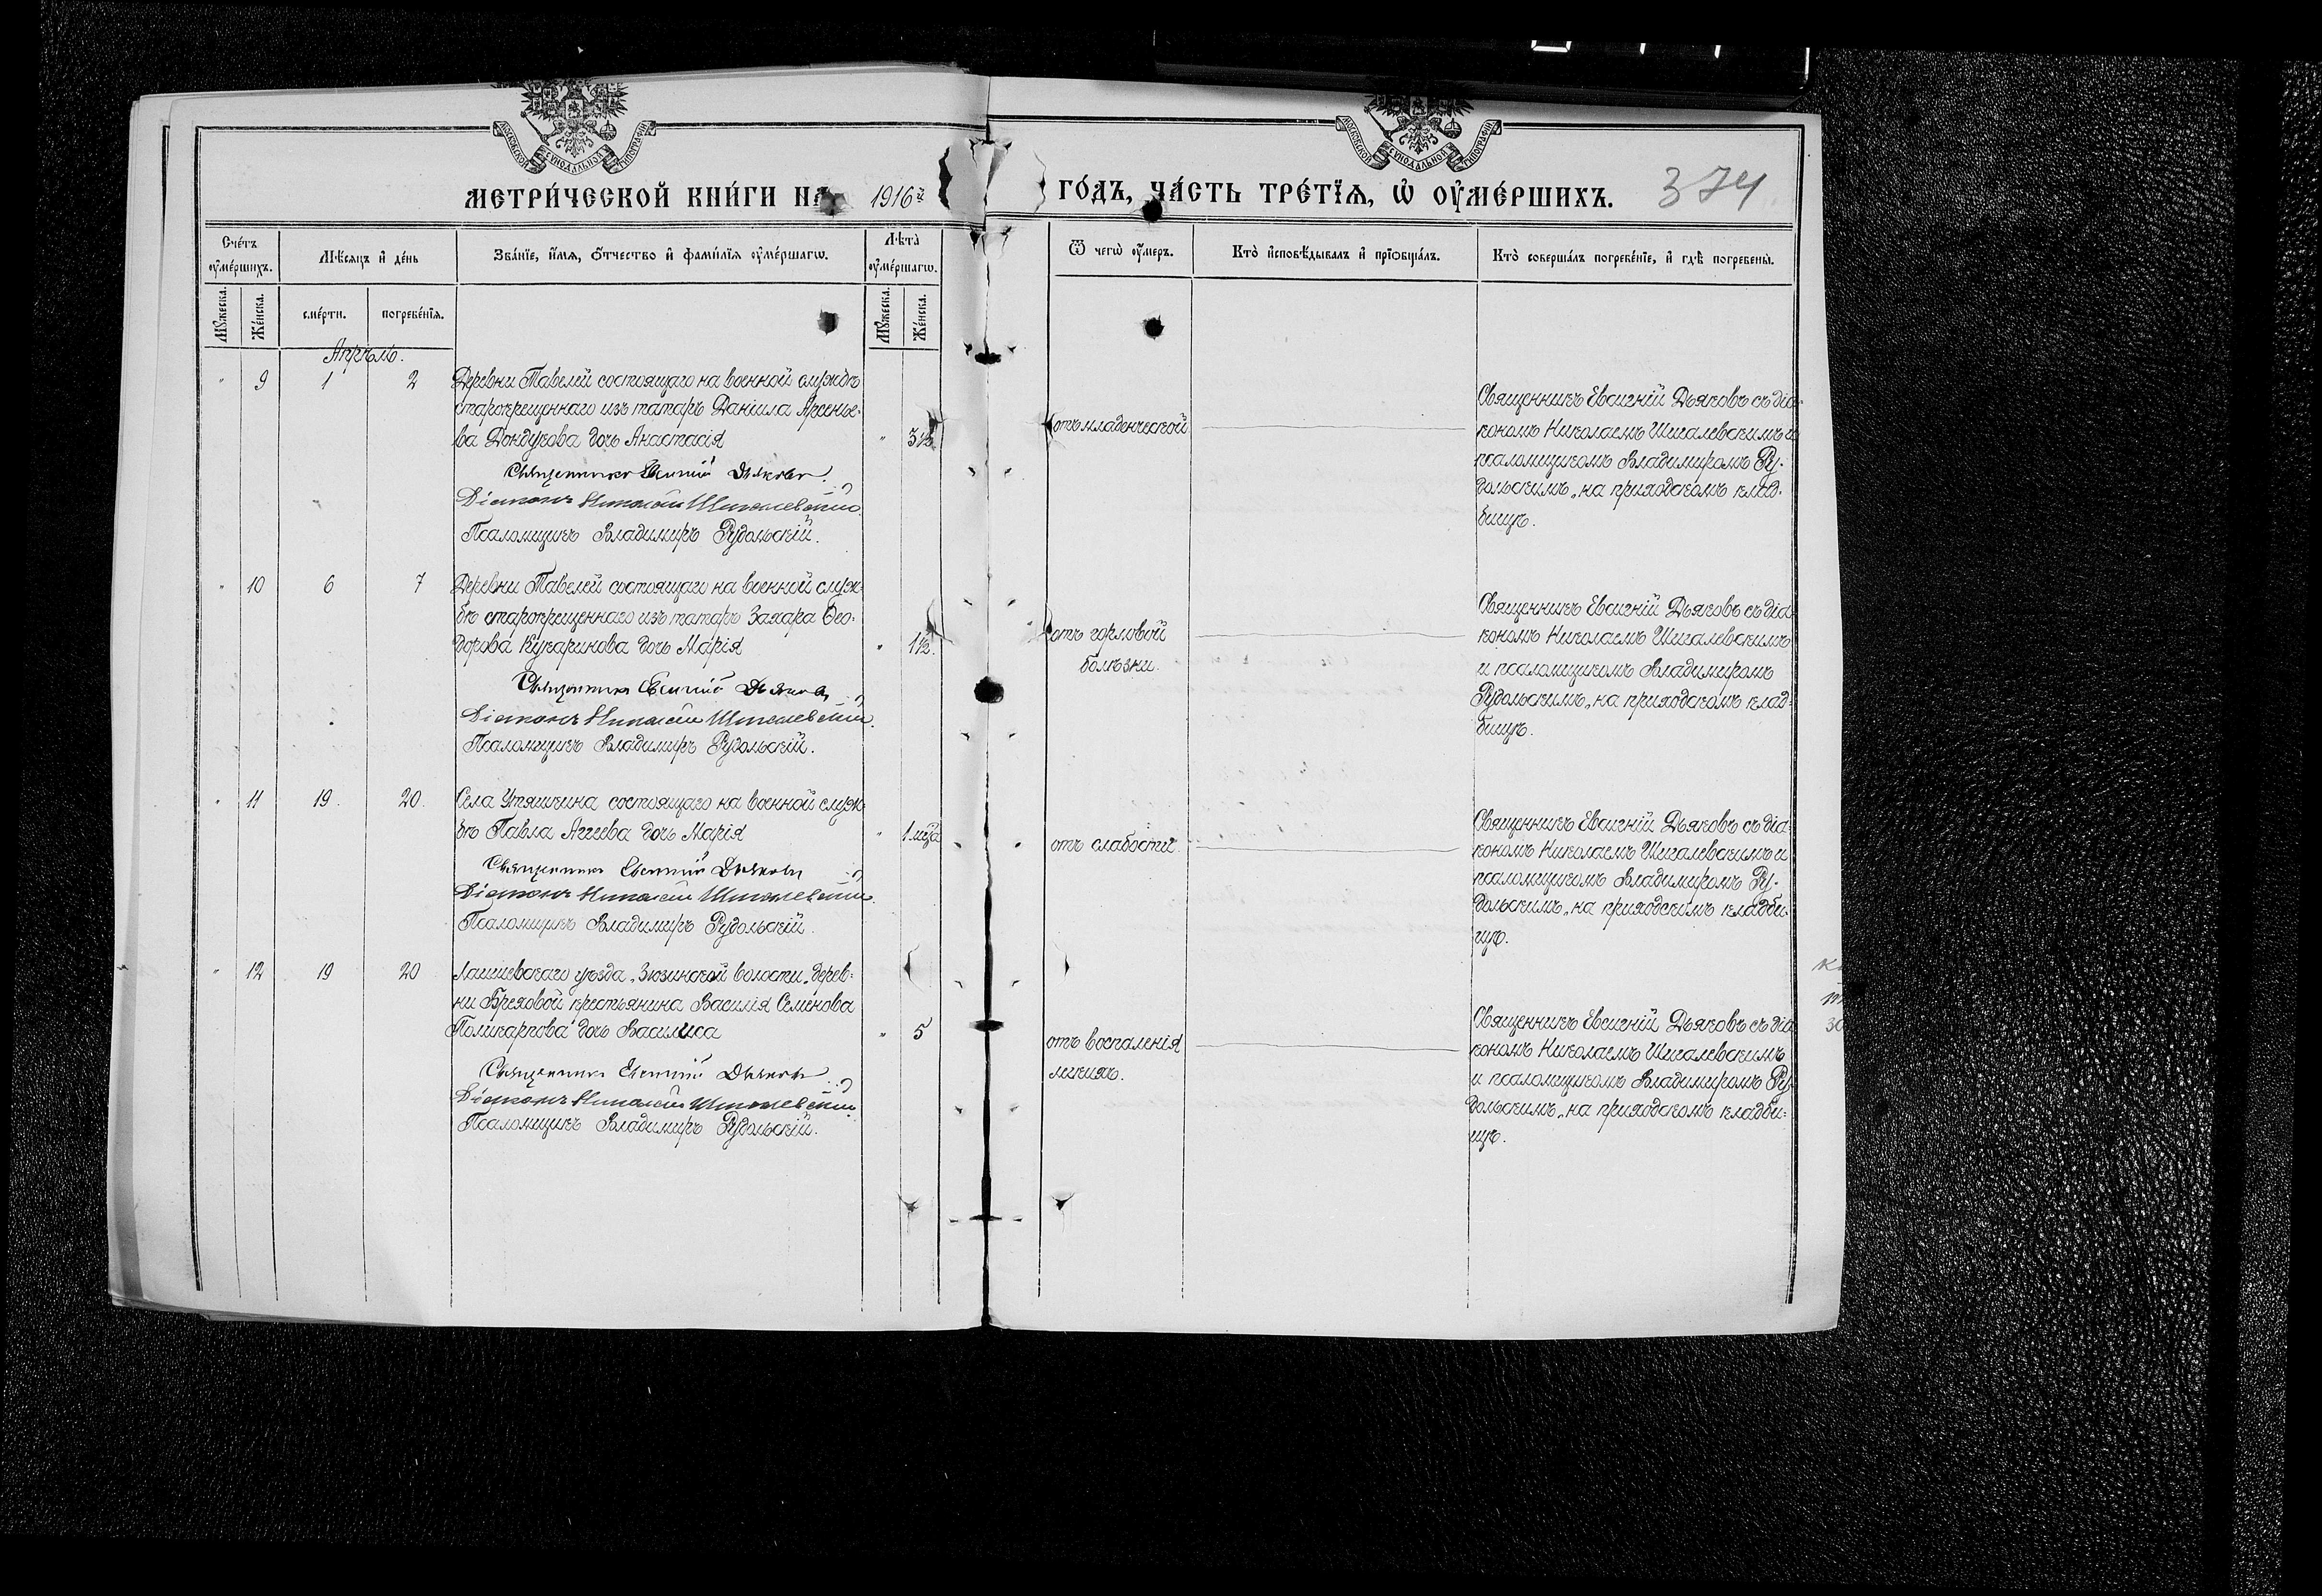 МОСКОВСКОЙ СѴНОДАЛЬНОЙ ТИПОГРАФІИ
МОСКОВСКОЙ СѴНОДАЛЬНОЙ ТИПОГРАФІИ
МЕТРИ́ЧЕСКОЙ КНИ́ГИ НА 1916й ГО́ДЪ, ЧА́СТЬ ТРЕ́ТЇѦ, Ѡ҆ ОУ҆МЕ́РШИХЪ. 374
Сче́тъ оу҆ме́ршихъ.
Мꙋ́жеска.
Же́нска.
Мѣ́сяцъ и҆ де́нь
сме́рти.
погребе́нїѧ.
Зва́нїе, и҆́мѧ, ѻ҆́тчество и҆ фами́лїѧ оу҆ме́ршагѡ.
Лѣ́та̀ оу҆ме́ршагѡ.
Мꙋ́жеска.
Же́нска.
Ѿ чегѡ̀ оу҆́меръ.
Кто̀ и҆сповѣ́дывалъ и҆ прїѡбща́лъ.
Кто̀ соверша́лъ погребе́нїе, и҆ гдѣ̀ погребены̀.
Апрѣль.
" 9 1 2
Деревни Тавелей состоящаго на военной службѣ
старокрещеннаго изъ татаръ Даніила Арсенье-
ва Дондукова дочь Анастасія " 3½
Священникъ Евсигній Дьяковъ.
Діаконъ Николай Шигалевскій.
Псаломщикъ Владимиръ Рудольскій.
отъ младенческой
Священникъ Евсигній Дьяковъ съ діа-
кономъ Николаемъ Шигалевскимъ и
псаломщикомъ Владимиромъ Ру-
дольскимъ, на приходскомъ клад-
бищѣ.
" 10 6 7
Деревни Тавелей состоящаго на военной служ-
бѣ старокрещеннаго изъ татаръ Захара Ѳео-
дорова Кукаринова дочь Марія " 1½.
Священникъ Евсигній Дьяковъ
Діаконъ Николай Шигалевскій.
Псаломщикъ Владимиръ Рудольскій.
отъ горловой
болѣзни.
Священникъ Евсигній Дьяковъ съ діа-
кономъ Николаемъ Шигалевскимъ
и псаломщикомъ Владимиромъ
Рудольскимъ, на приходскомъ клад-
бищѣ.
" 11 19. 20.
Села Утяшкина состоящаго на военной служ-
бѣ Павла Агеева дочь Марія " 1 мѣца
Священникъ Евсигній Дьяковъ
Діаконъ Николай Шигалевскій.
Псаломщикъ Владимиръ Рудольскій.
отъ слабости
Священникъ Евсигній Дьяковъ съ діа-
кономъ Николаемъ Шигалевскимъ и
псаломщикомъ Владимиромъ Ру-
дольскимъ, на приходскомъ кладби-
щѣ.
" 12 19 20
Лаишевскаго уѣзда, Зюзинской волости, дерев-
ни Бреховой крестьянина Василія Семенова
Поликарпова дочь Василиса " 5
Священникъ Евсигній Дьяковъ
Діаконъ Николай Шигалевскій.
Псаломщикъ Владимиръ Рудольскій.
отъ воспаленія
легкихъ.
Священникъ Евсигній Дьяковъ съ діа-
кономъ Николаемъ Шигалевскимъ
и псаломщикомъ Владимиромъ Ру-
дольскимъ, на приходскомъ кладби-
щѣ.